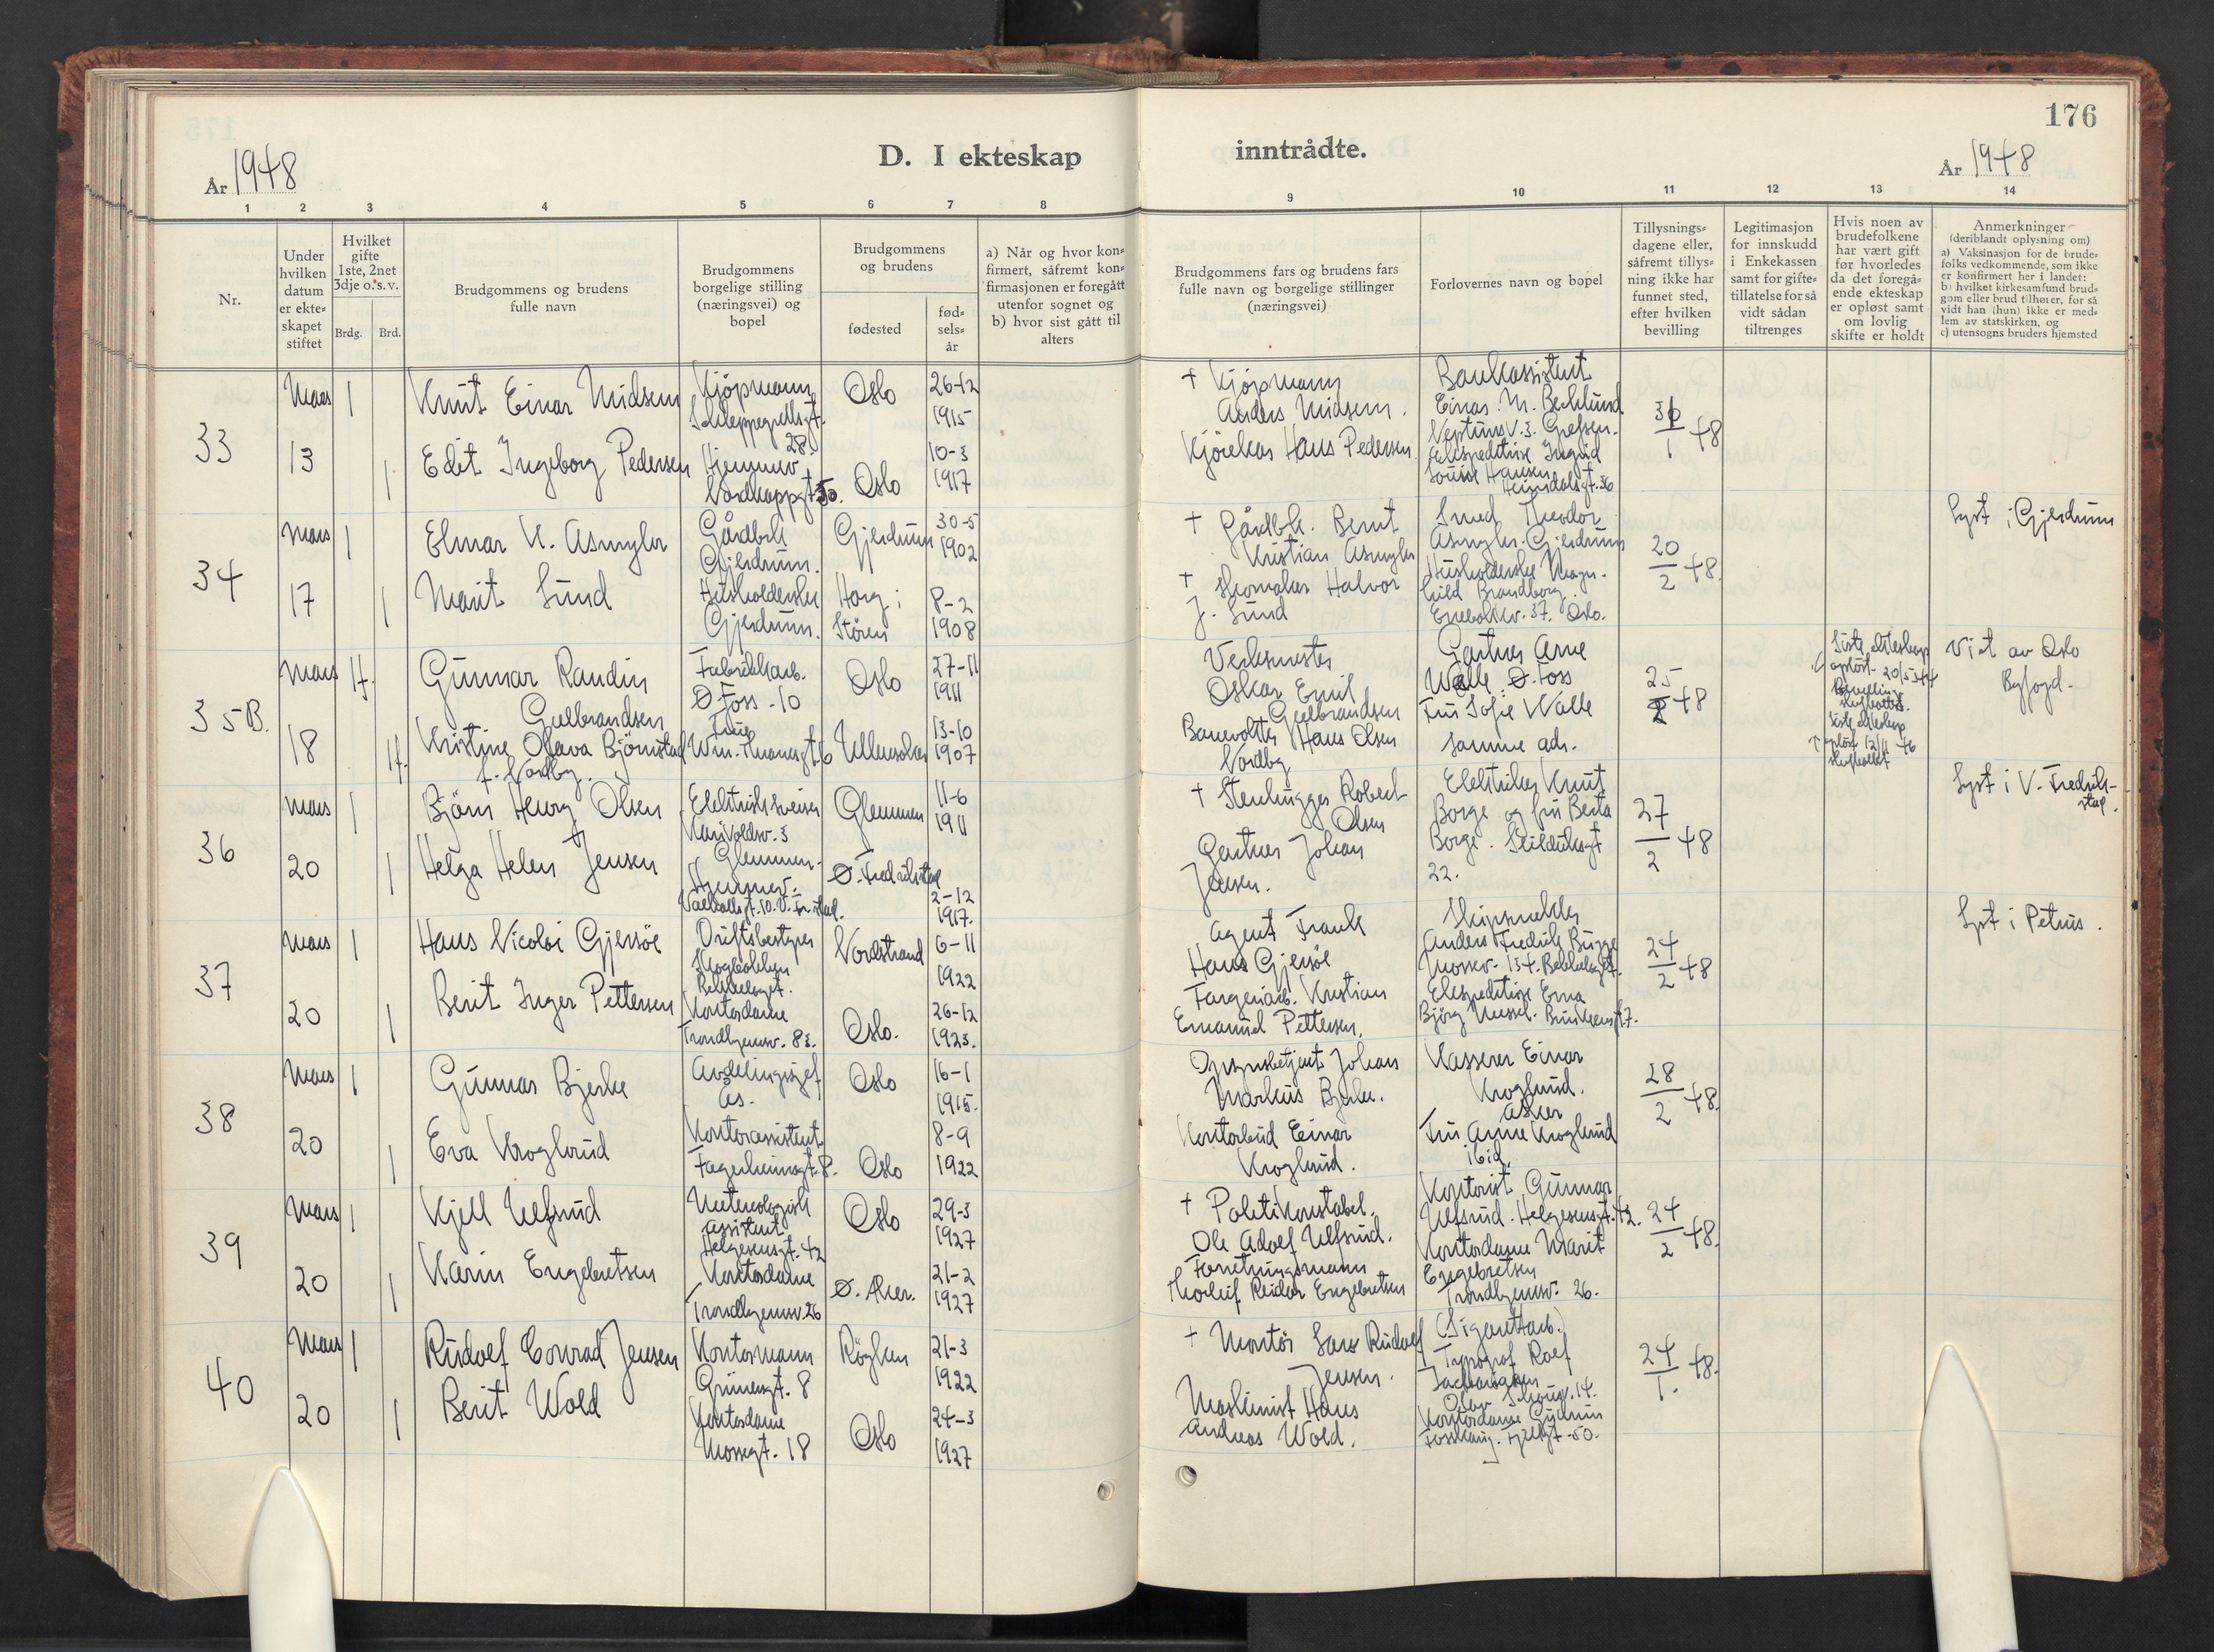 176
D. I ekteskap inntrådte.
År 1948
År 1948
1 2 3 4 5 6 7 8 9 10 11 12 13 14
Nr.
Under
hvilken
datum
er ekte-
skapet
stiftet
Hvilket
gifte
1ste, 2net
3dje o. s. v.
Brdg. Brd.
Brudgommens og brudens
fulle navn
Brudgommens
borgelige stilling
(næringsvei) og
bopel
Brudgommens
og brudens
fødested
fød-
sels-
år
a) Når og hvor kon-
firmert, såfremt kon-
firmasjonen er foregått
utenfor sognet og
b) hvor sist gått til
alters
Brudgommens fars og brudens fars
fulle navn og borgelige stillinger
(næringsvei)
Forlovernes navn og bopel
Tillysnings-
dagene eller,
såfremt tillys-
ning ikke har
funnet sted,
efter hvilken
bevilling
Legitimasjon
for innskudd
i Enkekassen
samt for gifte-
tillatelse for så
vidt sådan
tiltrenges
Hvis noen av
brudefolkene
har vært gift
før hvorledes
da det foregå-
ende ekteskap
er opløst samt
om lovlig
skifte er holdt
Anmerkninger
(deriblandt oplysning om)
a) Vaksinasjon for de brude-
folks vedkommende, som ikke
er konfirmert her i landet:
b) hvilket kirkesamfund brud-
gom eller brud tilhører, for så
vidt han (hun) ikke er med-
lem av statskirken, og
c) utensogns bruders hjemsted
33
Mars
13
1
1
Knut Einar Midsem
Edit Ingeborg Pedersen
Kjøpmann
Schleppegrellsgt.
28.
Hjemmev.
Nordkappgt.
Oslo
Oslo
26-12
1915
10-3
1917
+ Kjøpmann
Anders Midsem.
Kjørekar Hans Pedersen
Bankassistent
Einar M. Becklund
Neptunv. 3. Grefsen.
Ekspeditrise Ingrid
Louise Hansen
Heimdalsgt. 36
1 48
34
Mars
17
1
1
Elmar K. Asmyhr
Marit Lund
Gårdbr.
Gjerdrum.
Husholderske
Gjerdrum.
Gjerdrum
Horg i
Støren
30-5
1902
8-2
1908
+ Gårdbr. Bernt
Kristian Asmyhr
+ Skomaker Halvor
J. Lund
Smed Theodor
Asmyhr. Gjerdrum
Husholderske Magn-
hild Brandborg.
Enebakkv. 37. Oslo.
20
2 48.
Lyst i Gjerdrum
35 B.
Mars
18
1f.
1f.
Gunnar Randin
Gulbrandsen
Kristine Olava Bjørnstad
f. Nordby.
Fabrikkarb.
Ø. Foss. 10
Frue
Wm. Thranesgt. 6
Oslo
Ullensaker
27-11
1911
13-10
1907
Verksmester
Oskar Emil
Gulbrandsen
Banevokter Hans Olsen
Nordby
Gartner Arne
Walle Ø. Foss
Fru Sofie Walle
samme adr.
25
2 48
Siste ekteskap
opløst 20/5 44
Bevilling
Siste ekteskap
opløst 12/11 46
Viet av Oslo
Byfogd.
36
Mars
20
1
1
Bjørn Henry Olsen
Helga Helen Jensen
Elektrisk sveiser
Glemmen.
Hjemmev.
Glemmen
Ø. Fredrikstad
11-6
1911
2-12
1917.
+ Stenhugger Robert
Olsen
Gartner Johan
Jensen.
Elektriker Knut
Borge og fru Berta
Borge.
22.
27
2 48
Lyst i V. Fredrik-
stad.
37
Mars
20
1
1
Hans Nicolai Gjersøe
Berit Inger Pettersen
Driftsbestyrer
Skogbakken
Bekkelaget.
Kontordame
Trondhjemsv. 83.
Nordstrand
Oslo.
6-11
1922
26-12
1923.
Agent Frank
Hans Gjersøe
Fargeriarb. Kristian
Emanuel Pettersen.
Skipsmekler
Anders Fredrik Bugge
Mossev. 134. Bekkelaget.
Ekspeditrise Erna
24
2 48
Lyst i Petrus.
38
Mars
20
1
1
Gunnar Bjerke
Eva Kroglund
Avdelingssjef
Ås.
Kontorassistent
Fagerheimsgt. 8.
Oslo
Oslo
16-1
1915.
8-9
1922
Opsynsbetjent Johan
Markus Bjerke.
Kontorbud Einar
Kroglund.
Kasserer Einar
Kroglund.
Asker
Fru Anne Kroglund
ibid.
28
2 48.
39
Mars
20
1
1
Kjell Ulfsrud
Karin Engebretsen
Meteorologisk
assistent
Helgesensgt. 42
Kontordame
Trondhjemsv. 26
Oslo
Ø. Aker.
29-3
1927
21-2
1927
+ Politikonstabel.
Ole Adolf Ulfsrud.
Forretningsmann
Thorleif Reidar Engebretsen
Kontorist Gunnar
Ulfsrud. Helgesensgt. 42.
Kontordame Marit
Engebretsen
Trondhjemsv. 26.
24
2 48.
40
Mars
20
1
1
Rudolf Conrad Jensen
Berit Wold
Kontormann
Grünersgt. 8
Kontordame
Mossegt. 18
Røyken
Oslo
21-3
1922
24-3
1927
+ Montør Lars Rudolf
Jensen.
Maskinist Hans
Andreas Wold.
(Sigarettarb.)
Typograf Rolf
Kontordame Gudrun
24
1. 48.